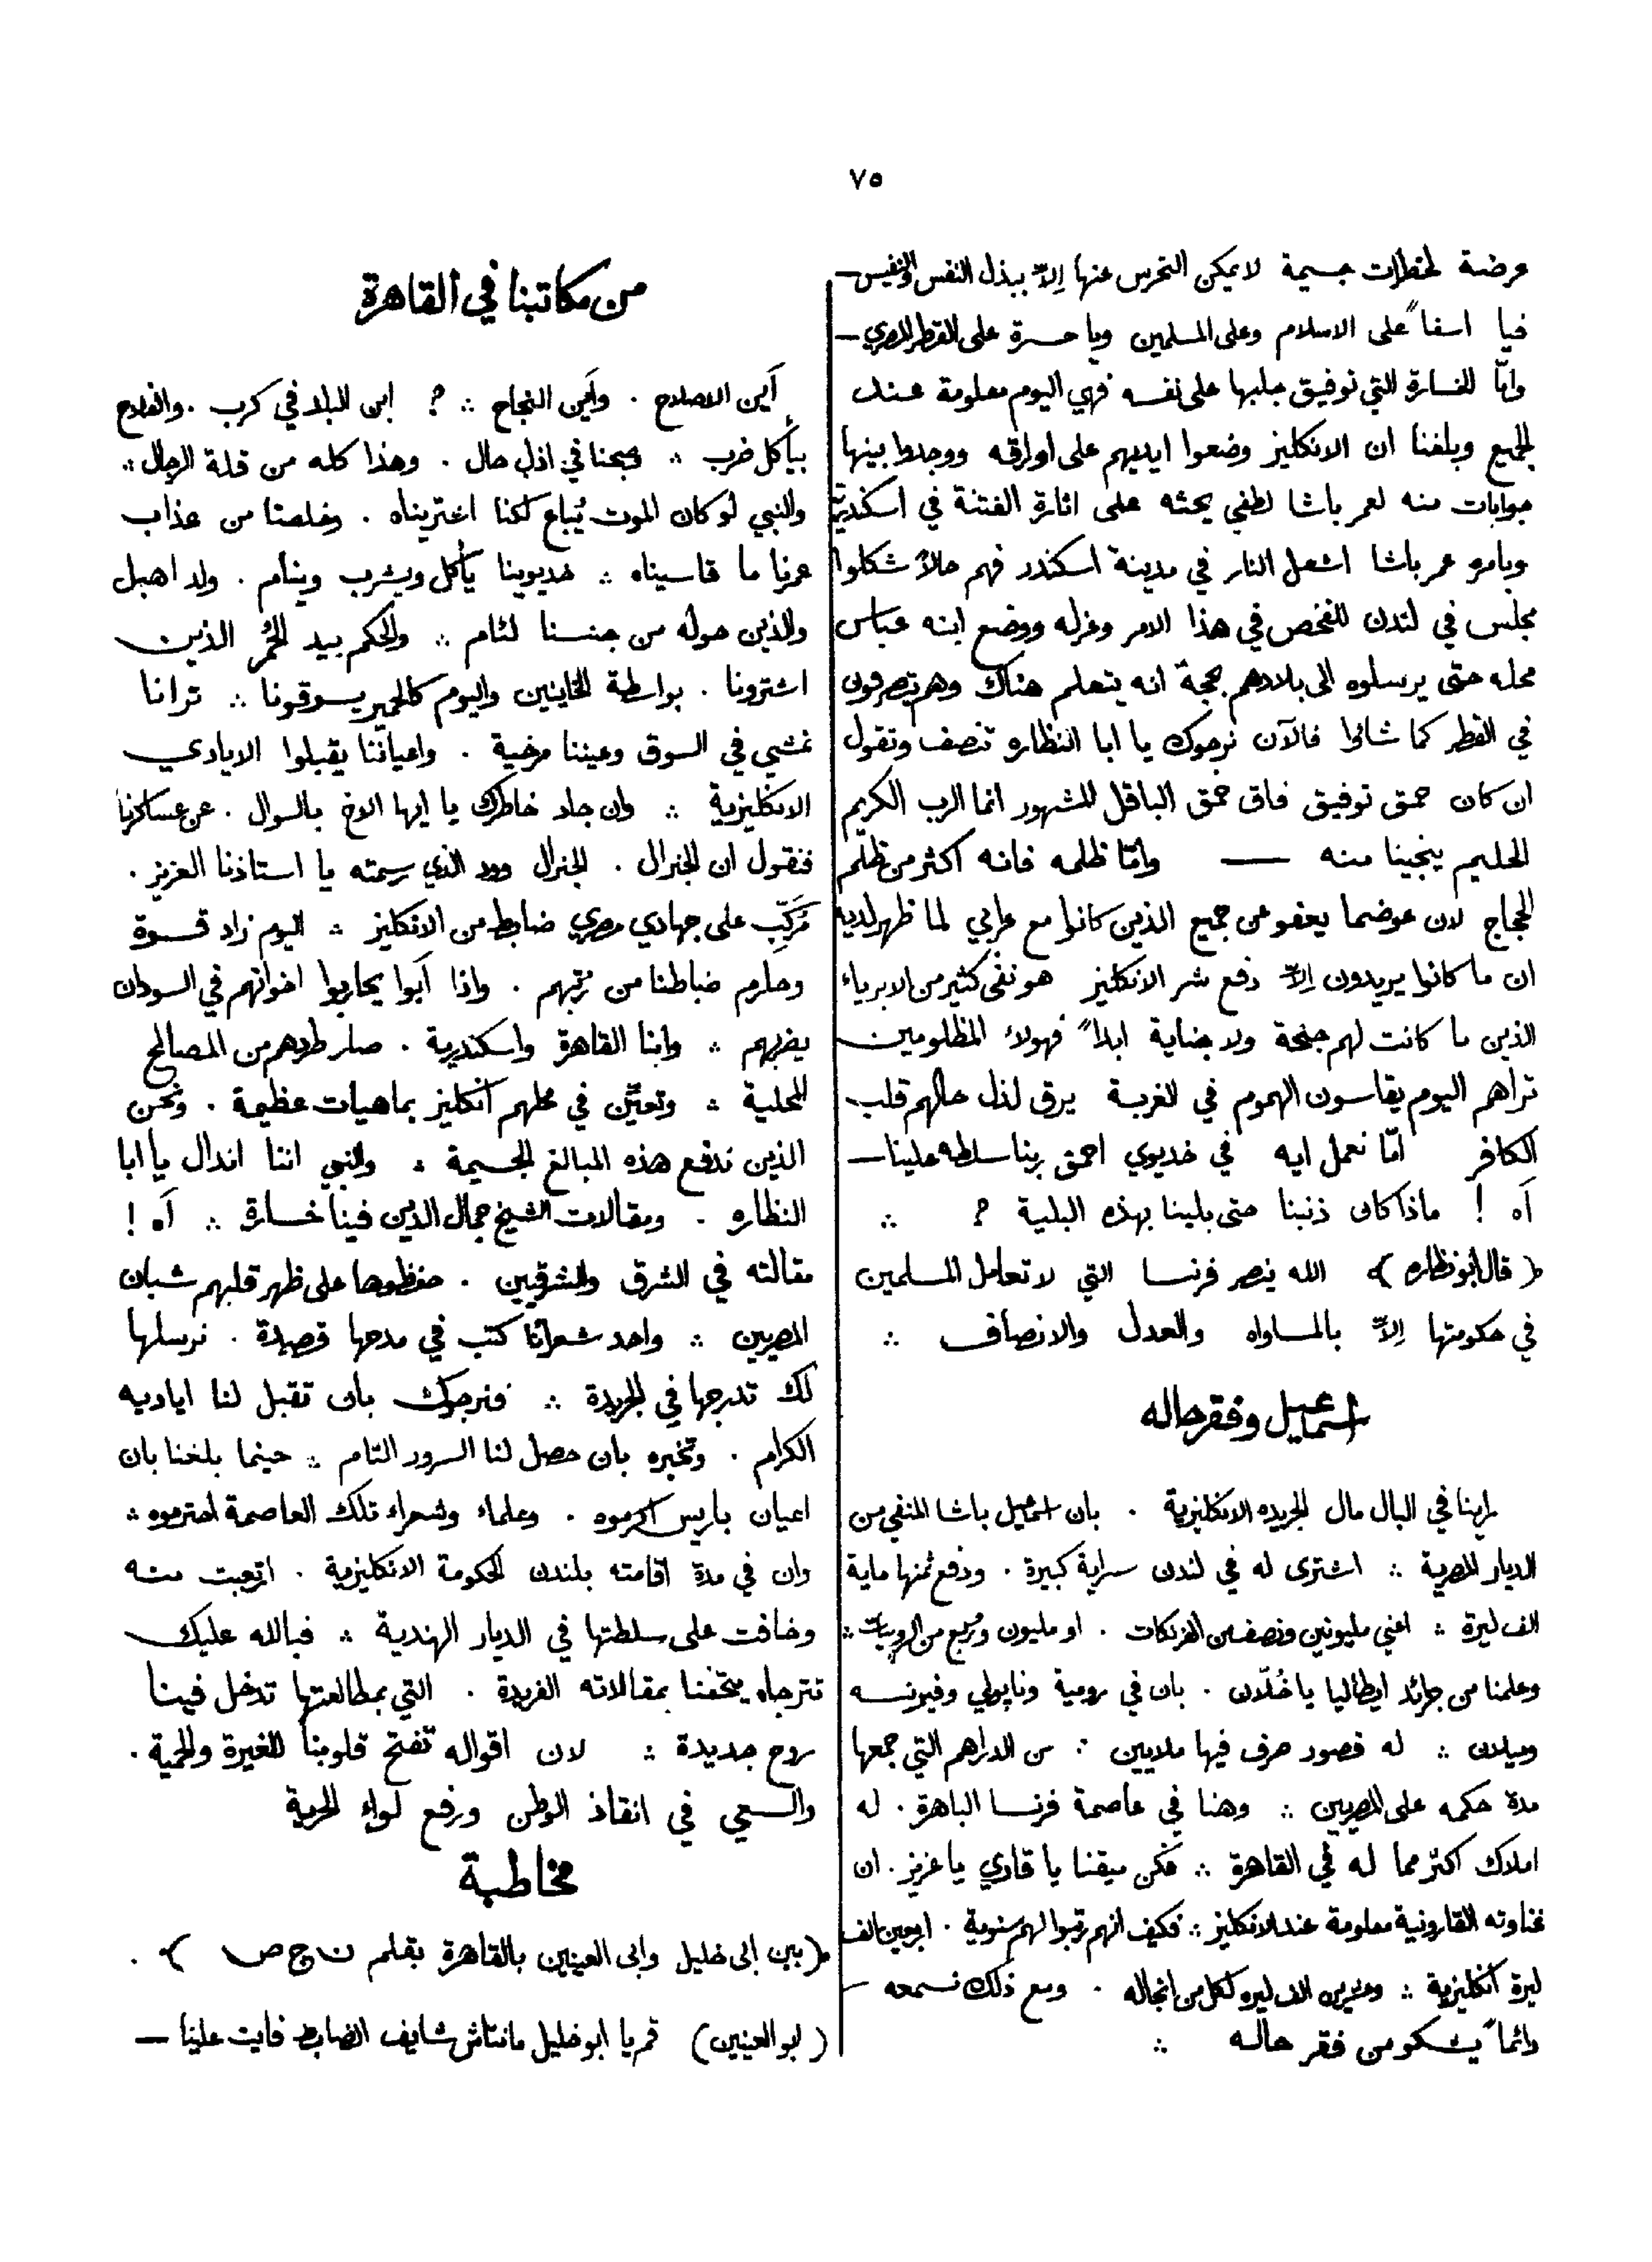 ٧٥
عرضة لخطرات جسيمة لا يمكن التحرس عنها إلّا ببذل النفس والنفيس —
فيا اسفاً على الاسلام وعلى المسلمين ويا حسرة على القطر المصري —
وامّا الخسارة التي توفيق جلبها على نفسه فهي اليوم معلومة عند
الجميع وبلغنا ان الانكليز وضعوا ايديهم على اوراقه ووجدوا بينها
جوابات منه لعمر باشا لطفي يحثه على اثارة الفتنة في اسكندرية
وبامره عمر باشا اشعل النار في مدينة اسكندر فهم حالاً شكلوا
مجلس في لندن للفحص في هذا الامر وعزله ووضع ابنه عباس
محله حتى يرسلوه الى بلادهم بحجة انه يتعلم هناك وهم يتصرفون
في القطر كما شائوا فالآن نرجوك يا ابا النظاره تنصف وتقول
ان كان حمق توفيق فاق حمق الباقل المشهور انما الرب الكريم
الحليم ينجينا منه — وامّا ظلمه فانه اكثر من ظلم
الحجاج لان عوضما يعفو عن جميع الذين كانوا مع عرابي لما ظهر لديه
ان ما كانوا يريدون إلّا دفع شر الانكليز هو نفى كثير من الابرياء
الذين ما كانت لهم جنحة ولا جناية ابداً فهولاء المظلومين
تراهم اليوم يقاسون الهموم في الغربة يرق لذل حالهم قلب
الكافر امّا نعمل ايه في خديوي احمق ربنا سلطه علينا —
آه ! ماذا كان ذنبنا حتى بلينا بهذه البلية ؟ ∴
﴿ قال ابو نظاره ﴾ الله ينصر فرنسا التي لا تعامل المسلمين
في حكومتها إلّا بالمساواه والعدل والانصاف ∴
اسماعيل وفقر حاله
راينا في البال مال الجريده الانكليزية . بان اسمعيل باشا المنفي من
الديار المصرية ∴ اشترى له في لندن سراية كبيرة . ودفع ثمنها ماية
الف ليرة ∴ اعني مليونين ونصف من الفرنكات . او مليون وربع من الروبيات ∴
وعلمنا من جرائد ايطاليا يا خُلّان . بان في رومية ونابولي وفيرنسه
وميلان ∴ له قصور صرف فيها ملايين ∴ من الدراهم التي جمعها
مدة حكمه على المصريين ∴ وهنا في عاصمة فرنسا الباهرة . له
املاك اكثر مما له في القاهرة ∴ فكن متيقنا يا قاري يا عزيز . ان
غناوته القارونية معلومة عند الانكليز ∴ فكيف انهم رتبوا لهم سنوية . اربعين الف
ليرة انكليزية ∴ وعشرين الف ليره لكل من انجاله . ومع ذلك نسمعه —
دائماً يشكو من فقر حاله ∴
من مكاتبنا في القاهرة
أين الاصلاح . واين النجاح ∴ ؟ ابن البلد في كرب . والفلاح
بيأكل ضرب ∴ صبحنا في اذل حال . وهذا كله من قلة الرجال ∴
والنبي لو كان الموت يُباع لكنا اشتريناه . وخلصنا من عذاب
عمرنا ما قاسيناه ∴ خديوينا يأكل ويشرب وينام . ولد اهبل
والذين حوله من جنسنا لئام ∴ والحكم بيد الحُمر الذين
اشترونا . بواسطة الخاينين واليوم كالحمير يسوقونا ∴ ترانا
نمشي في السوق وعيننا مرخية . واعياننا يقبلوا الايادي
الانكليزية ∴ وان جاد خاطرك يا ايها الاخ بالسوال . عن عساكرنا
فنقول ان الجنرال . الجنرال وود الذي رسمته يا استاذنا العزيز .
مُركّب على جهادي مصري ضابط من الانكليز ∴ اليوم زاد قسوة
وحارم ضباطنا من رتبهم . واذا أبوا يحاربوا اخواتهم في السودان
يضربهم ∴ وابنا القاهرة واسكندرية . صار طردهم من المصالح
المحلية ∴ وتعيّن في محلهم انكليز بماهيات عظيمة . ونحن
الذين ندفع هذه المبالغ الجسيمة ∴ والنبي اننا اندال يا ابا
النظاره . ومقالات الشيخ جمال الدين فينا خسارة ∴ آه !
مقالته في الشرق والشرقيين . حفظوها على ظهر قلبهم شبان
المصريين ∴ واحد شعرائنا كتب في مدحها قصيدة . نرسلها
لك تدرجها في الجريدة ∴ فنرجوك بان تقبل لنا اياديه
الكرام . وتخبره بان حصل لنا السرور التام ∴ حينما بلغنا بان
اعيان باريس اكرموه . وعلماء وشعراء تلك العاصمة احترموه ∴
وان في مدة اقامته بلندن الحكومة الانكليزية . اترعبت منه
وخافت على سلطتها في الديار الهندية ∴ فبالله عليك
تترجاه يتحفنا بمقالاته الفريدة . التي بمطالعتها تدخل فينا
روح جديدة ∴ لان اقواله تفتح قلوبنا للغيرة والحمية .
والسعي في انقاذ الوطن ورفع لواء الحرية
مخاطبة
﴿ بين ابى خليل وابى العينين بالقاهرة بقلم ن ج ص ﴾ .
( ابو العينين ) قم يا ابو خليل مانتاش شايف الضابط فايت علينا —